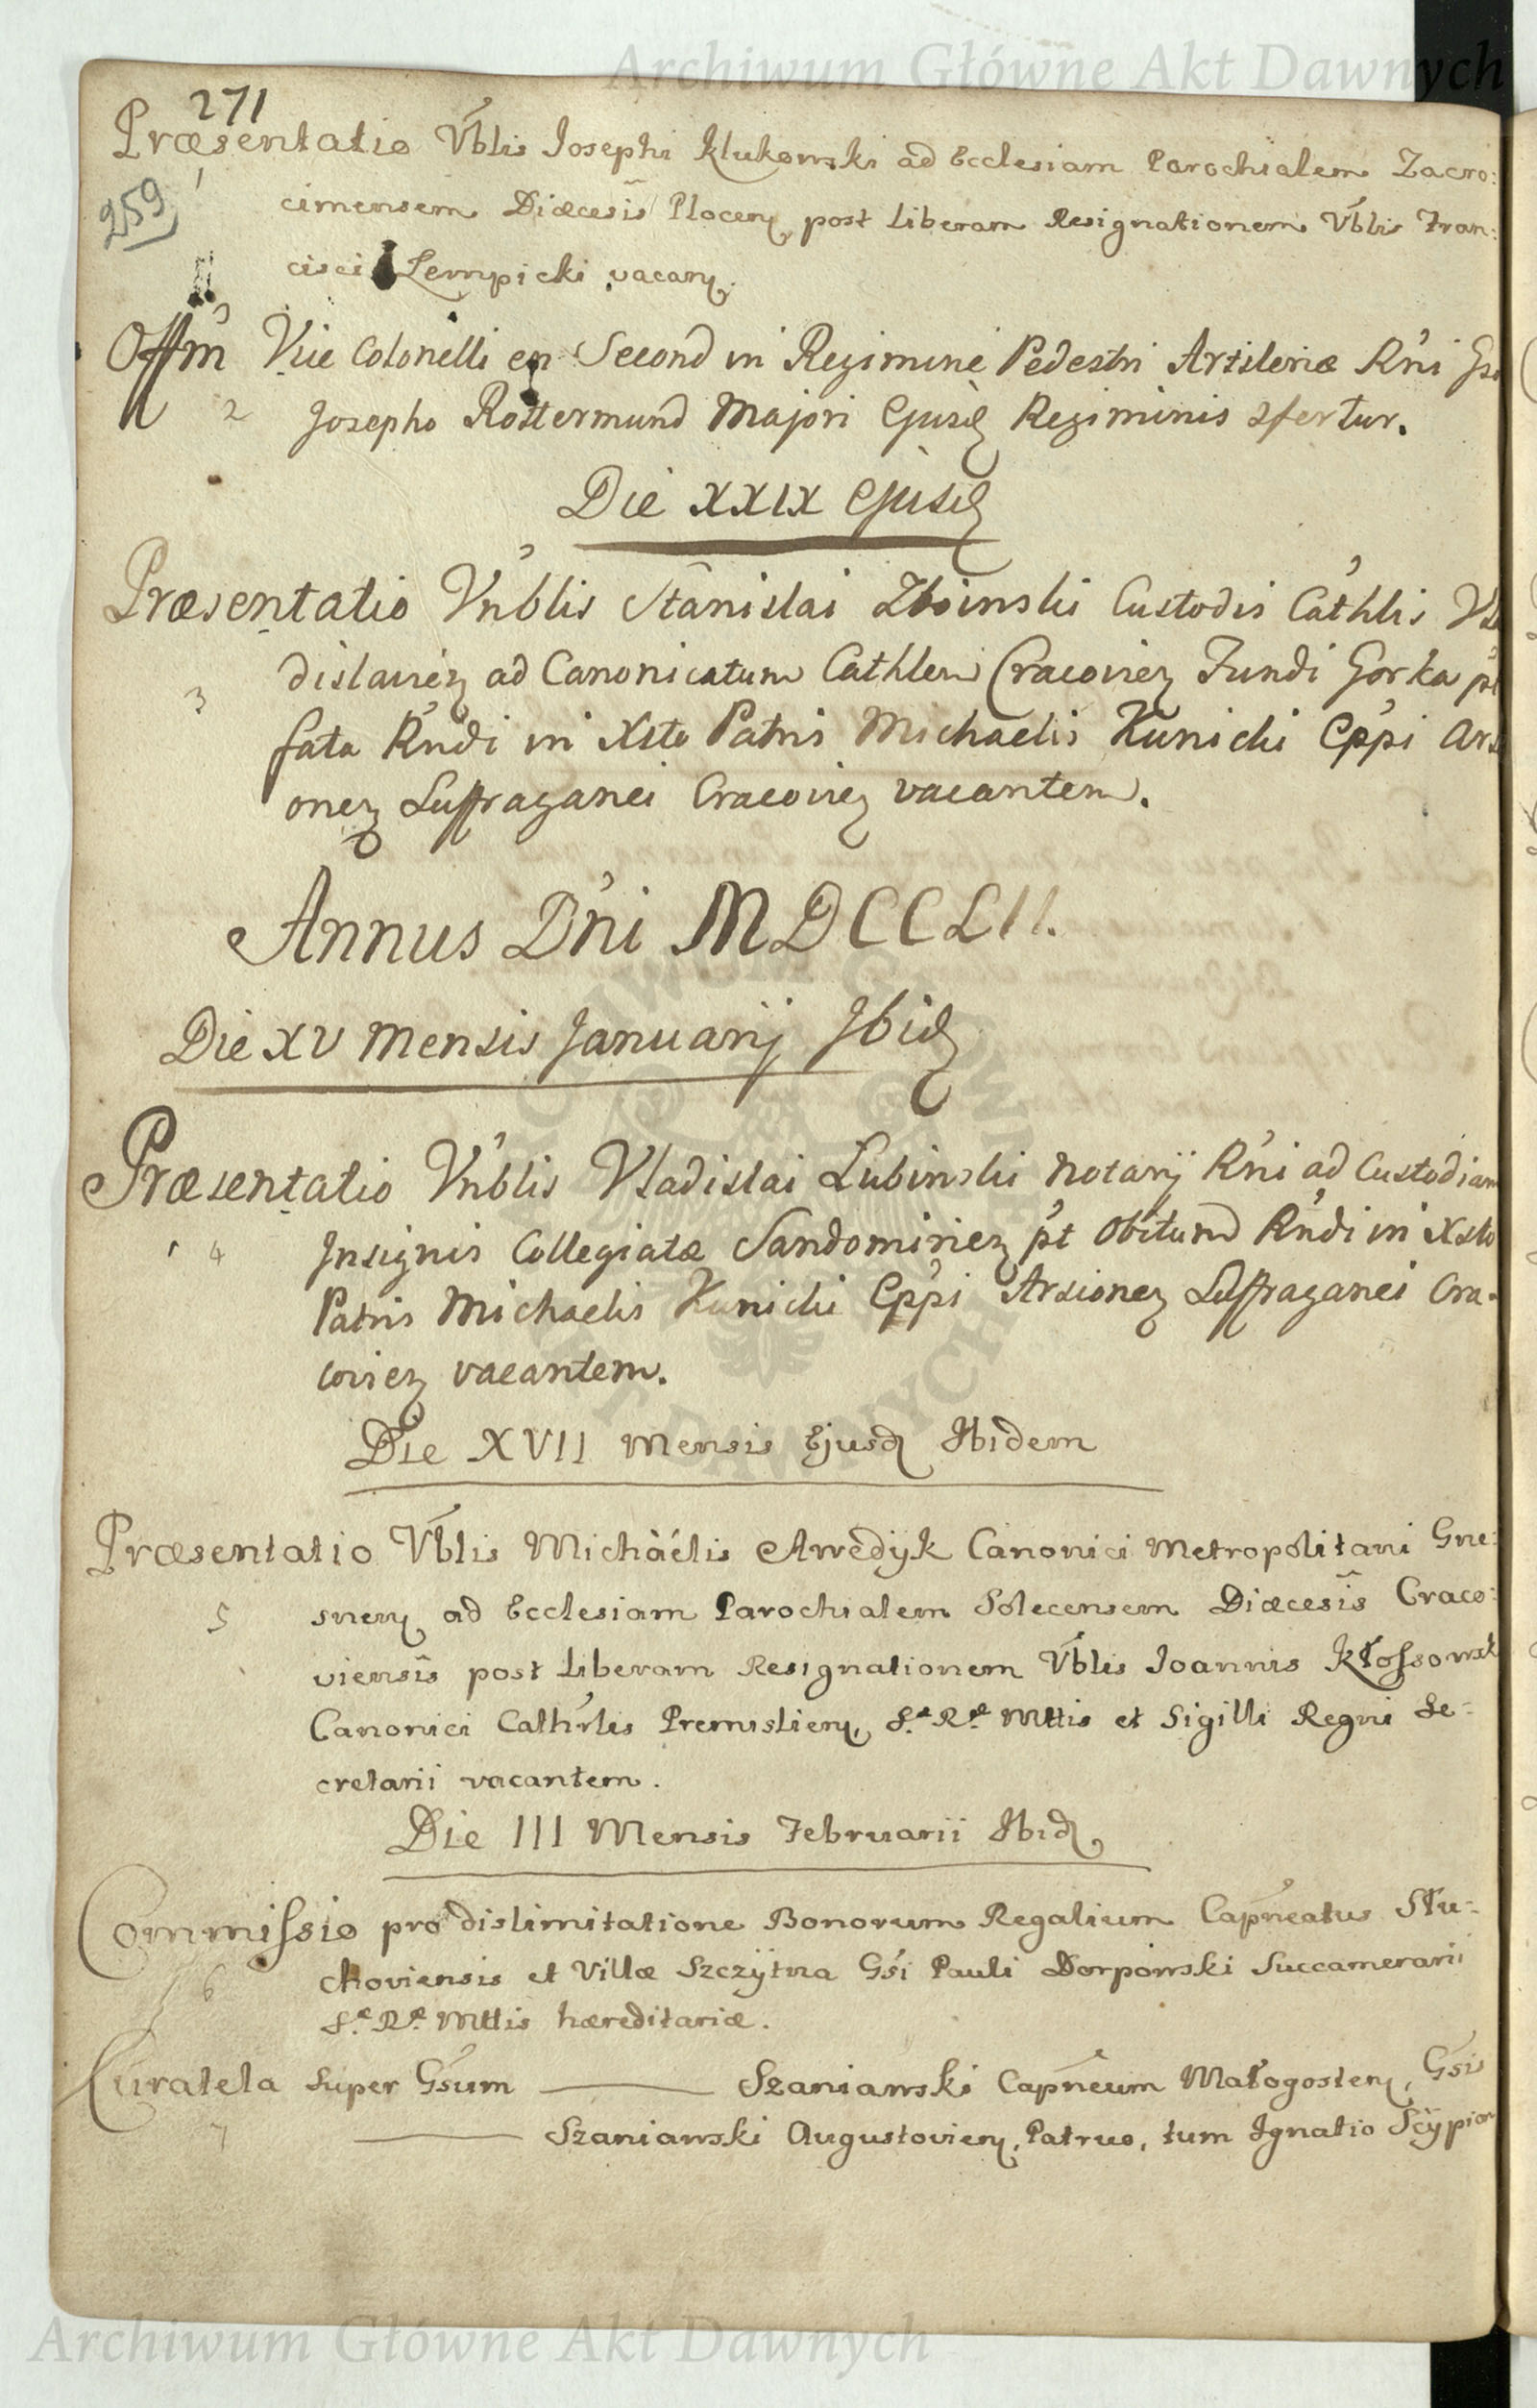 Archiwum Główne Akt Dawnych
271
Præsentatio Vblis Josephi Klukowski ad Ecclesiam Parochialem Zacro:
1
259
cimensem Diæcesis Plocen post liberam Resignationem Vblis Fran:
cisci Łempicki vacan.
Offm Vice Colonelli en Second in Regimine Pedestri Artileriæ Rni Gso
2 Josepho Rottermund Majori Ejusd Regiminis 2fertur.
Die XXIX Ejusd
Præsentatio Vnblis Stanislai Zboinski Custodis Cathlis Vla
dislavien ad Canonicatum Cathlem Cracovien Fundi Gorka pt
3
fata Rndi in Xsto Patris Michaelis Kunicki Eppi Arsi
onen Suffraganei Cracovien vacantem.
Annus Dni MDCCLII.
Die XV Mensis Januarij Ibid
Præsentatio Vnblis Vladislai Łubinski Notarij Rni ad Custodiam
4 Insignis Collegiatæ Sandomirien pt Obitum Rndi in Xsto
Patris Michaelis Kunicki Eppi Arsionen Suffraganei Cra-
covien vacantem.
Die XVII Mensis Ejusd Ibidem
Præsentatio Vblis Michaëlis Awedyk Canonici Metropolitani Gne:
5 snen ad Ecclesiam Parochialem Solecensem Diæcesis Craco:
viensis post liberam Resignationem Vblis Joannis Kłossowski
Canonici Cathrlis Premislien, S.æ R.æ Mttis et Sigilli Regni Se-
cretarii vacantem.
Die III Mensis Februarii Ibid
Commissio pro dislimitatione Bonorum Regalium Capneatus Stu-
6 choviensis et Villæ Szczytna Gsi Pauli Dorpowski Succamerarii
S.æ R.æ Mttis hæreditariæ.
Curatela super Gsum — Szaniawski Capneum Małogosten, Gsis
7 — Szaniawski Augustovien, Patruo, tum Ignatio Scypion
Archiwum Główne Akt Dawnych